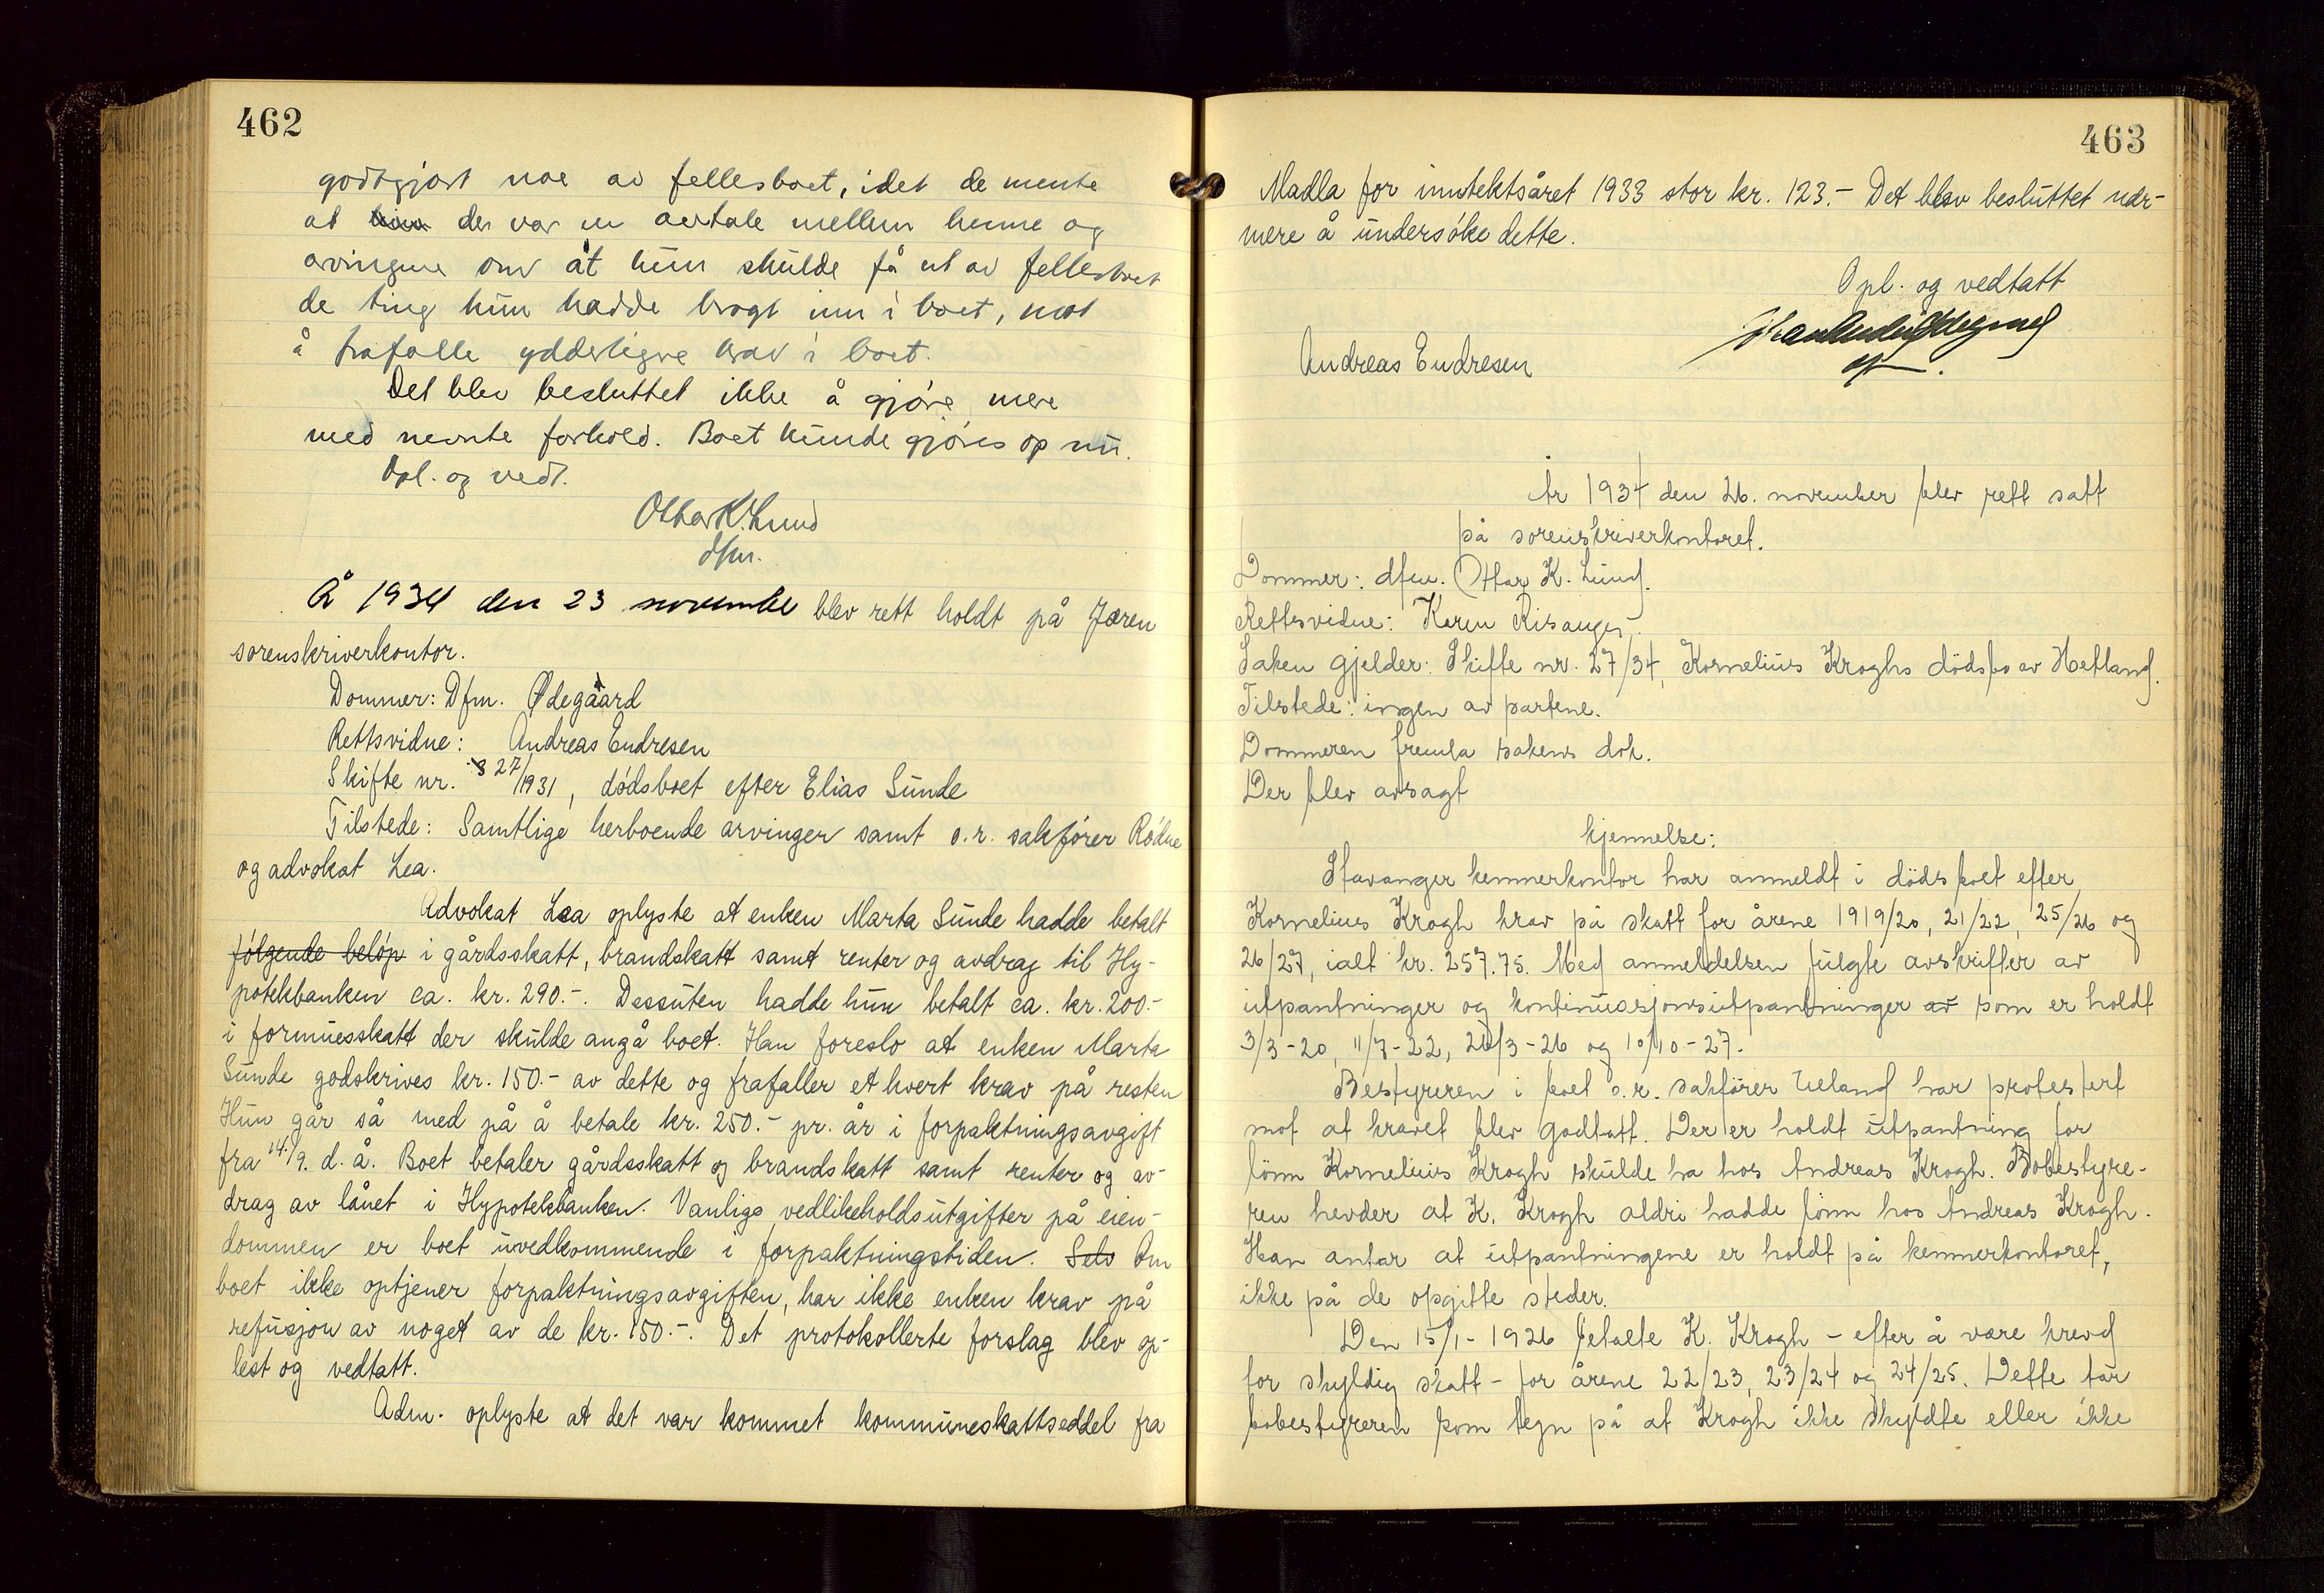 462
godtgjort noe av fellesboet, idet de mente
at hun der var en avtale mellem henne og
arvingene om at hun skulde få ut av fellesboet
de ting hun hadde bragt inn i boet, mot
å frafalle ydderligere krav i boet.
Det blev besluttet ikke å gjøre mere
med nevnte forhold. Boet kunde gjøres op nu.
Opl. og vedt.
Ottar K. Lund
dfm.
År 1934 den 23 november blev rett holdt på Jæren
sorenskriverkontor.
Dommer: Dfm. Ødegaard
Rettsvidne: Andreas Endresen
Skifte nr. 27/1931, dødsboet efter Elias Sunde
Tilstede: Samtlige herboende arvinger samt o.r. sakfører Rødne
og advokat Lea.
Advokat Lea oplyste at enken Marta Sunde hadde betalt
følgende beløp i gårdsskatt, brandskatt samt renter og avdrag til Hy-
potekbanken ca. kr. 290.-. Dessuten hadde hun betalt ca. kr. 200.-
i formuesskatt der skulde angå boet. Han foreslo at enken Marta
Sunde godskrives kr. 150.- av dette og frafaller et hvert krav på resten
Hun går så med på å betale kr. 250.- pr. år i forpaktningsavgift
fra 14/9. d. å. Boet betaler gårdsskatt og brandskatt samt renter og av-
drag av lånet i Hypotekbanken. Vanlige vedlikeholdsutgifter på eien-
dommen er boet uvedkommende i forpaktningstiden. Selv Om
boet ikke optjener forpaktningsavgiften, har ikke enken krav på
refusjon av noget av de kr. 150.-. Det protokollerte forslag blev op-
lest og vedtatt.
Adm. oplyste at det var kommet kommuneskattseddel fra
463
Madla for inntektsåret 1933 stor kr. 123.- Det blev besluttet nær-
mere å undersøke dette.
Opl. og vedtatt
Andreas Endresen
År 1934 den 26. november blev rett satt
på sorenskriverkontoret.
Dommer: dfm. Ottar K. Lund.
Rettsvidne: Karen Risanger.
Saken gjelder: Skifte nr. 27/34, Kornelius Kroghs dødsbo av Hetland.
Tilstede: ingen av partene.
Dommeren fremla sakens dok.
Der blev avsagt
kjennelse:
Stavanger kemnerkontor har anmeldt i dødsboet efter
Kornelius Krogh krav på skatt for årene 1919/20, 21/22, 25/26 og
26/27, ialt kr. 257.75. Med anmeldelsen fulgte avskrifter av
utpantninger og kontinuasjonsutpantninger av som er holdt
3/3-20, 11/7-22, 26/3-26 og 10/10-27.
Bestyreren i boet o.r. sakfører Ueland har protestert
mot at kravet blev godtatt. Der er holdt utpantning for
lønn Kornelius Krogh skulde ha hos Andreas Krogh. Bobestyre-
ren hevder at K. Krogh aldri hadde lønn hos Andreas Krogh.
Han antar at utpantningene er holdt på kemnerkontoret,
ikke på de opgitte steder.
Den 15/1-1926 betalte K. Krogh - efter å være krevd
for skyldig skatt - for årene 22/23, 23/24 og 24/25. Dette tar
bobestyreren som tegn på at Krogh ikke skyldte eller ikke